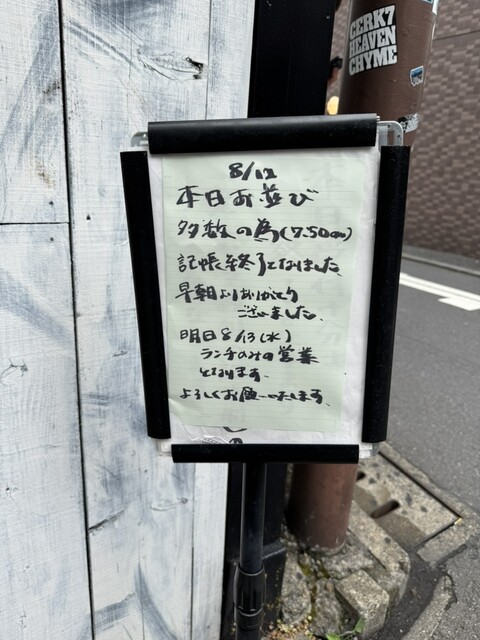 CERK7
HEAVEN
CHYME
8/12
本日お並び
多数の為(7.50am)
記帳終了となりました。
早朝よりありがとう
ございました。
明日8/13(水)
ランチのみの営業
となります。
よろしくお願い致します。